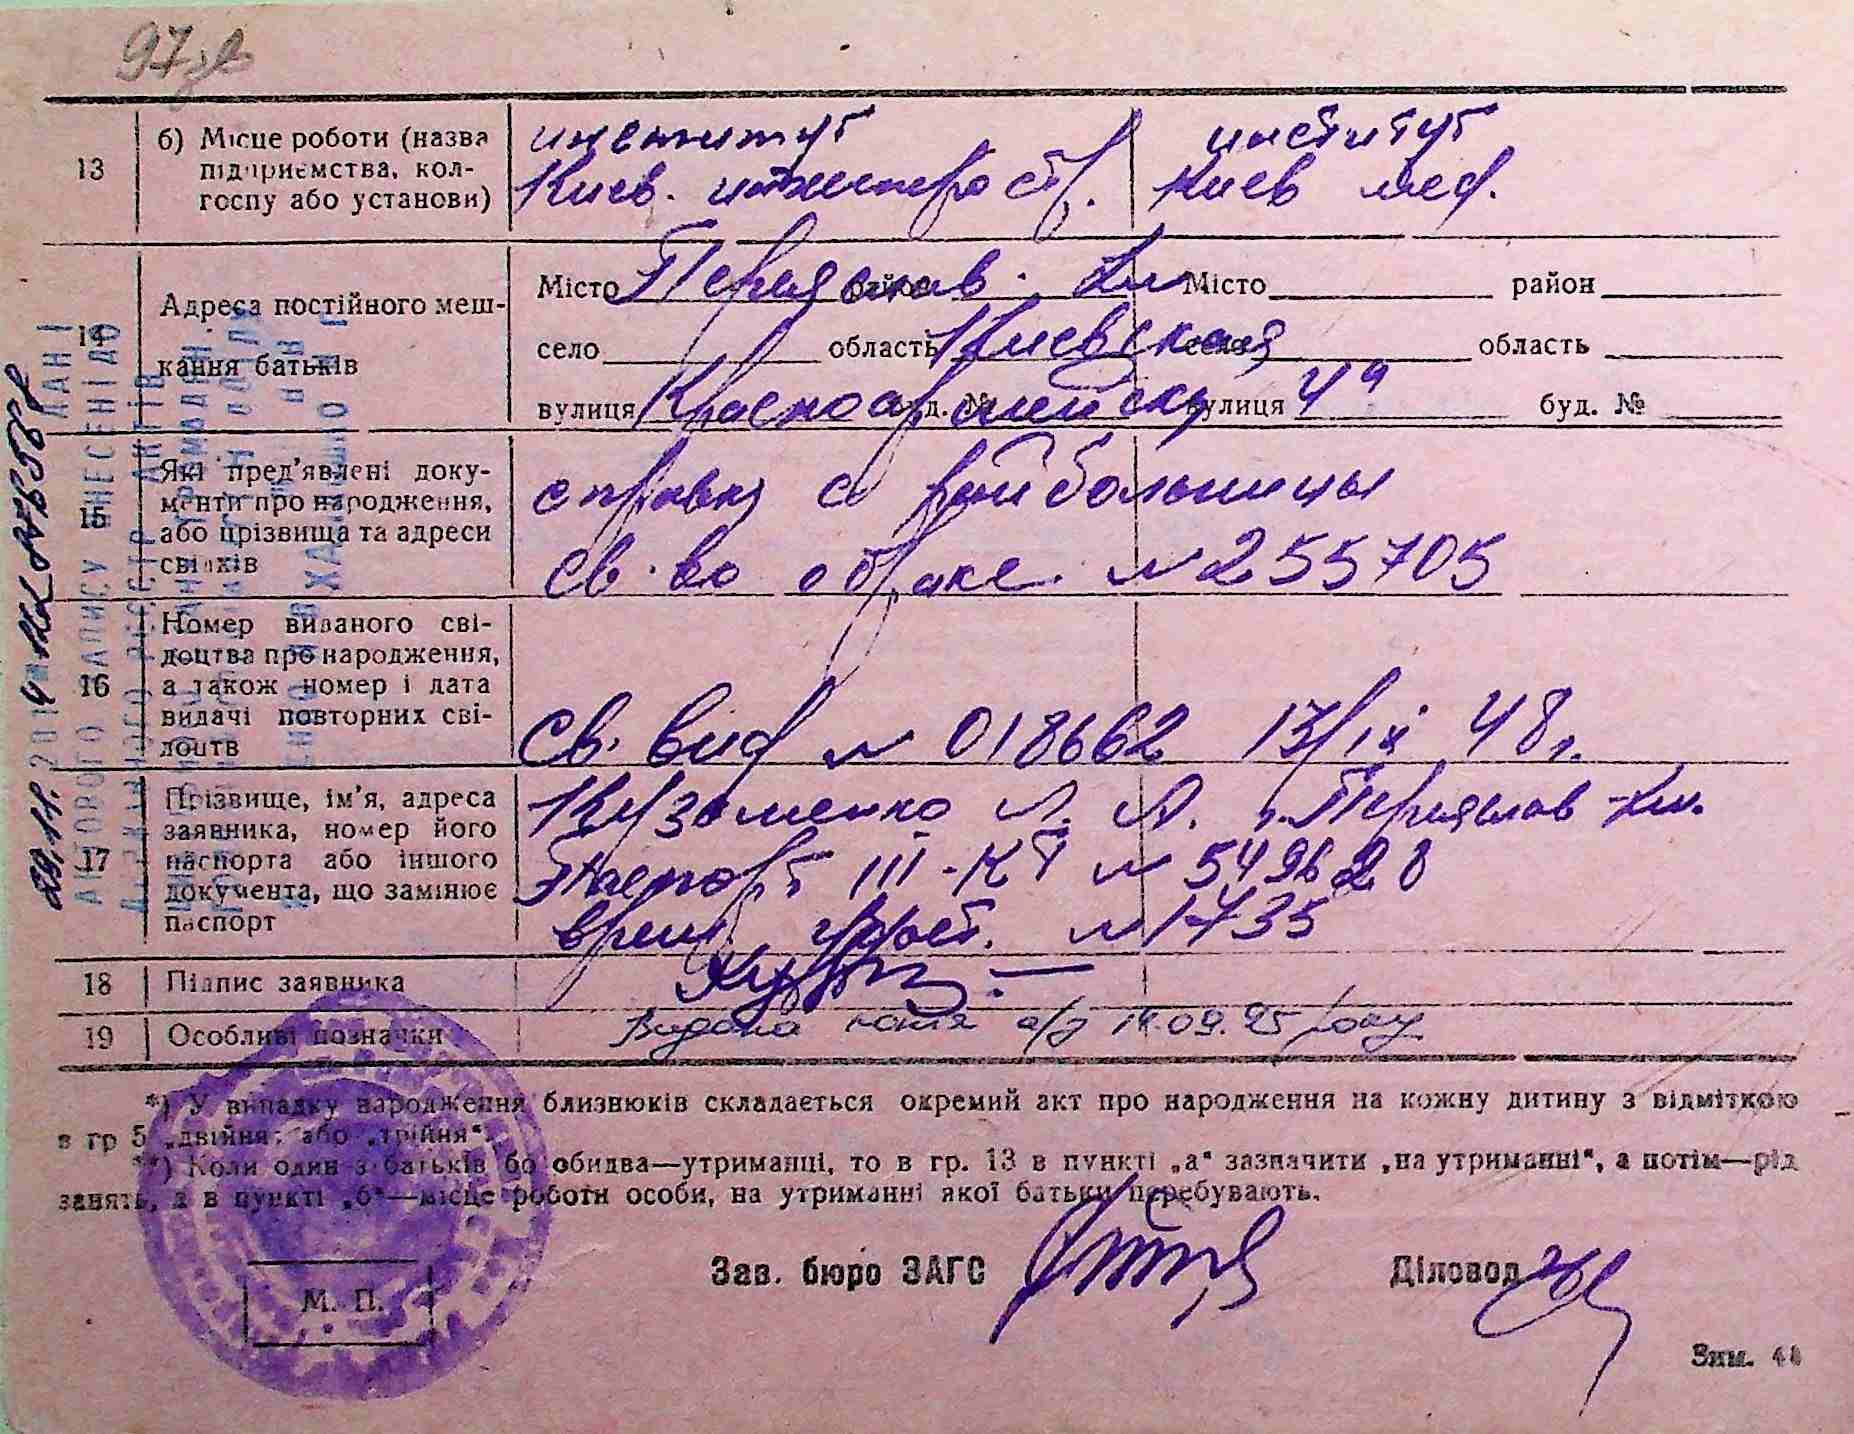 97
13 б) Місце роботи (назва підприємства, кол-госпу або установи)
институт институт
Киев. Киев мед.
14 Адреса постійного меш-
кання батьків
Місто Переяслав-Хм Місто район
село область Киевская область
вулиця Красноармейская вулиця 4а буд. №
15 Які пред'явлені доку-
менти про народження,
або прізвища та адреси
свідків
справка с райбольницы
св-во о браке № 255705
16 Номер виданого сві-
доцтва про народження,
а також номер і дата
видачі повторних сві-
доцтв
Св. выд № 018662 13/IX 48 г.
17 Прізвище, ім'я, адреса
заявника, номер його
паспорта або іншого
документа, що замінює
паспорт
Кузьменко Л. А. г. Переяслав-Хм.
Паспорт III-КТ № 549628
врем. № 1735
18 Підпис заявника
19 Особливі позначки
Видана копія а/з 14.09.95 року
*) У випадку народження близнюків складається окремий акт про народження на кожну дитину з відміткою
в гр 5 „двійня“ або „трійня“.
**) Коли один з батьків бо обидва—утриманці, то в гр. 13 в пункті „а“ зазначити „на утриманні“, а потім—рід
занять, а в пункті „б“—місце роботи особи, на утриманні якої батьки перебувають.
Зав. бюро ЗАГС Діловод
М. П.
Зим. 48